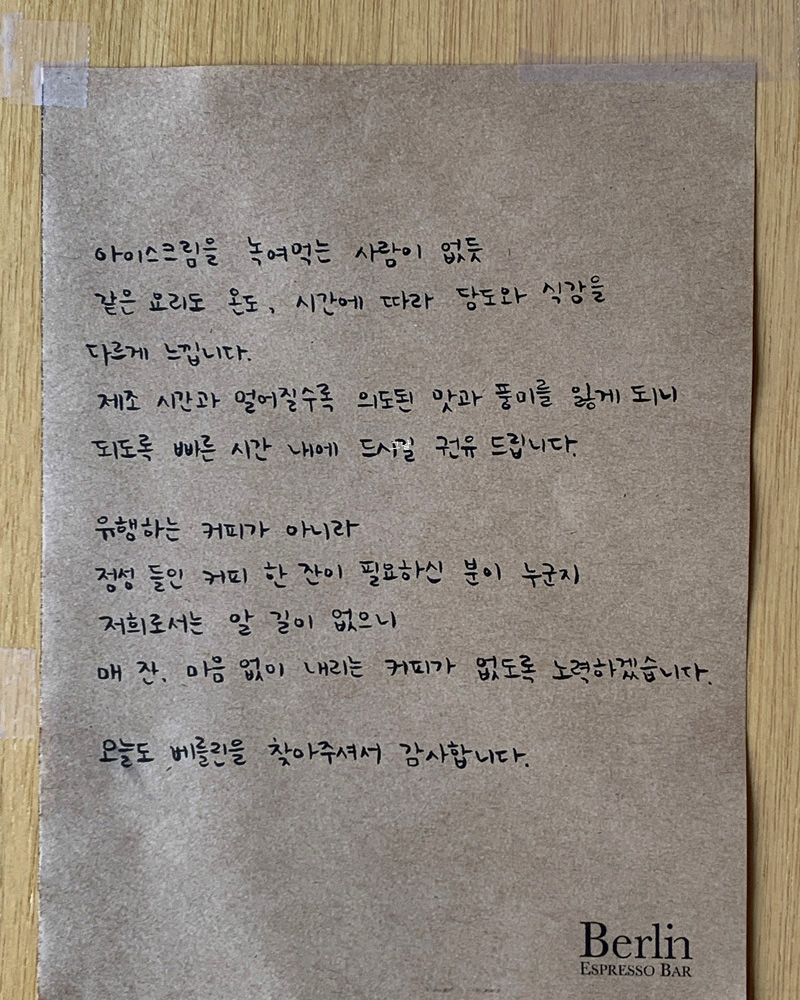 아이스크림을 녹여먹는 사람이 없듯
같은 요리도 온도, 시간에 따라 당도와 식감을
다르게 느낍니다.
제조 시간과 멀어질수록 의도된 맛과 풍미를 잃게 되니
되도록 빠른 시간 내에 드시길 권유 드립니다.
유행하는 커피가 아니라
정성 들인 커피 한 잔이 필요하신 분이 누군지
저희로서는 알 길이 없으니
매 잔, 마음 없이 내리는 커피가 없도록 노력하겠습니다.
오늘도 베를린을 찾아주셔서 감사합니다.
Berlin
ESPRESSO BAR